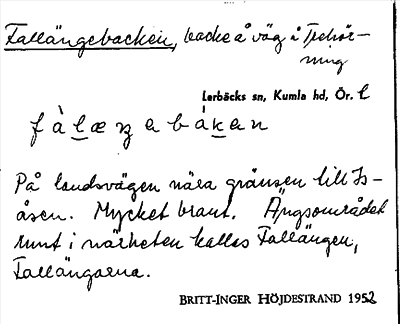 Fallängebacken, backe å väg i Trehör-
ning
Lerbäcks sn, Kumla hd, Ör. l
fàlæŋebáken
På landsvägen nära gränsen till Is-
åsen. Mycket brant. Ängsområdet
runt i närheten kallas Fallängen,
Fallängarna.
BRITT-INGER HÖJDESTRAND 1952